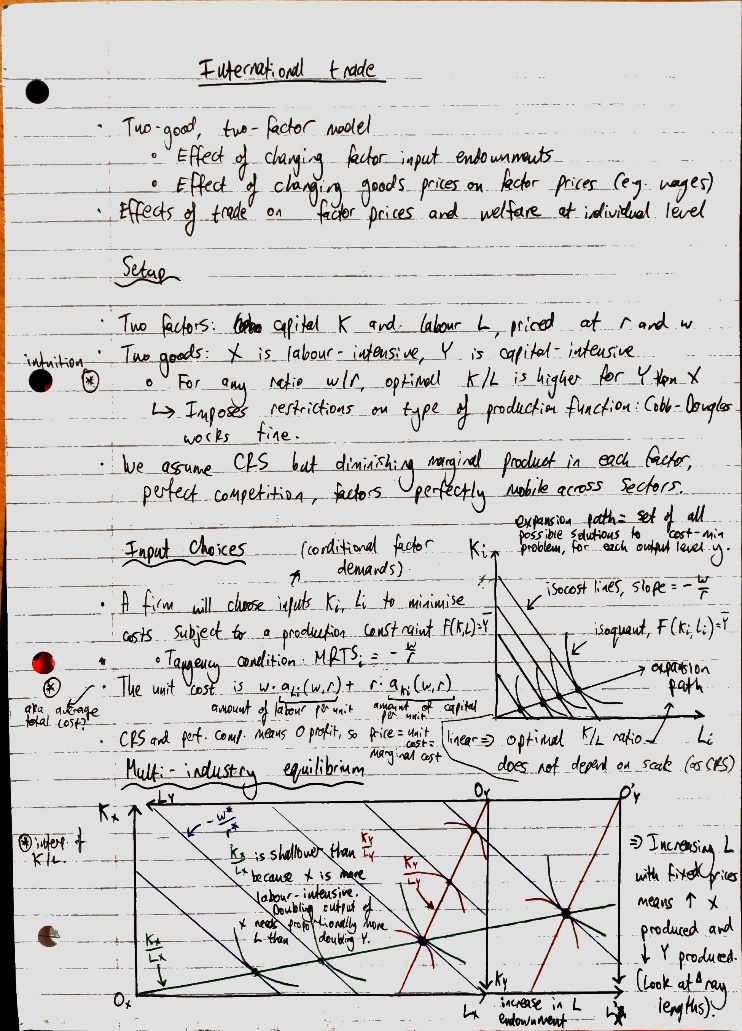 International trade
• Two-good, two-factor model
◦ Effect of changing factor input endownments
◦ Effect of changing goods prices on factor prices (e.g. wages)
• Effects of trade on factor prices and welfare at individual level
Setup
• Two factors: capital K and labour L, priced at r and w
intuition
• Two goods: X is labour-intensive, Y is capital-intensive
⊛ ◦ For any ratio w/r, optimal K/L is higher for Y than X
↳ Imposes restrictions on type of production function: Cobb-Douglas
works fine.
• We assume CRS but diminishing marginal product in each factor,
perfect competition, factors perfectly mobile across sectors.
expansion path = set of all
possible solutions to cost-min
problem, for each output level y.
Input Choices
(conditional factor
demands)
• A firm will choose inputs Ki, Li to minimise
costs subject to a production constraint F(K,L)=Y̅
◦ Tangency condition: MRTSi = -w/r
• The unit cost is w·aLi(w,r) + r·aKi(w,r)
amount of labour per unit
amount of capital
per unit
⊛
aka average
total cost?
• CRS and perf. comp. means 0 profit, so price = unit
cost =
marginal cost
Ki
isocost lines, slope = -w/r
isoquant, F(Ki, Li)=Y̅
expansion
path
Li
linear ⇒ optimal K/L ratio
does not depend on scale (as CRS)
Multi-industry equilibrium
Kx
LY
OY
O'Y
-w*/r*
⊛ interp. of
K/L.
Kx/Lx is shallower than KY/LY
because X is more
labour-intensive.
Doubling output of
X needs proportionally more
L than doubling Y.
KY/LY
Kx/Lx
Ox
Lx
KY
increase in L
endownment
⇒ Increasing L
with fixed prices
means ↑ X
produced and
↓ Y produced.
(Look at Δ ray
lengths).